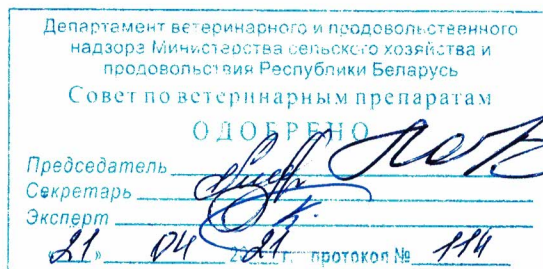 Департамент ветеринарного и продовольственного
надзора Министерства сельского хозяйства и
продовольствия Республики Беларусь
Совет по ветеринарным препаратам
ОДОБРЕНО
Председатель
Секретарь
Эксперт
«21» 04 2021 г. протокол № 114